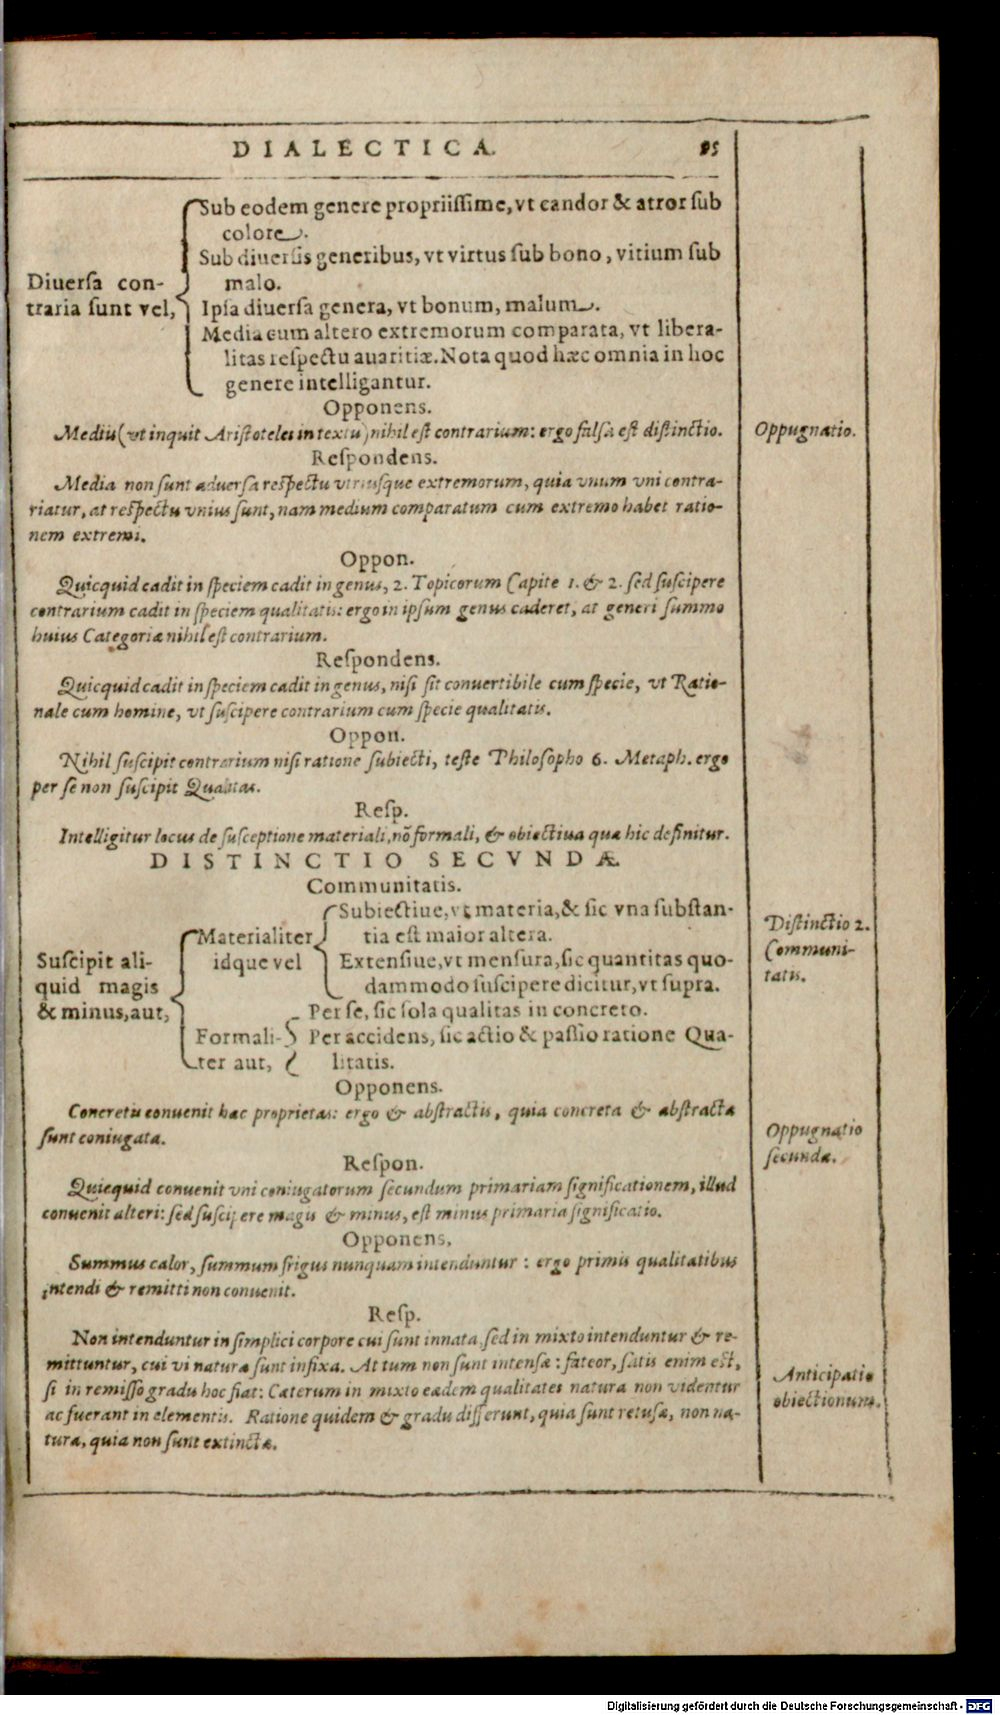 DIALECTICA. 85
Sub eodem genere propriissime, vt candor & atror sub
colore.
Sub diuersis generibus, vt virtus sub bono, vitium sub
malo.
Diuersa con-
traria sunt vel,
Ipsa diuersa genera, vt bonum, malum.
Media cum altero extremorum comparata, vt libera-
litas respectu auaritiæ. Nota quod hæc omnia in hoc
genere intelligantur.
Opponens.
Mediū (vt inquit Aristoteles in textu) nihil est contrarium: ergo falsa est distinctio.
Oppugnatio.
Respondens.
Media non sunt aduersa respectu vtriusque extremorum, quia vnum vni contra-
riatur, at respectu vnius sunt, nam medium comparatum cum extremo habet ratio-
nem extremi.
Oppon.
Quicquid cadit in speciem cadit in genus, 2. Topicorum Capite 1. & 2. sed suscipere
contrarium cadit in speciem qualitatis: ergo in ipsum genus caderet, at generi summo
huius Categoriæ nihil est contrarium.
Respondens.
Quicquid cadit in speciem cadit in genus, nisi sit conuertibile cum specie, vt Ratio-
nale cum homine, vt suscipere contrarium cum specie qualitatis.
Oppon.
Nihil suscipit contrarium nisi ratione subiecti, teste Philosopho 6. Metaph. ergo
per se non suscipit Qualitas.
Resp.
Intelligitur locus de susceptione materiali, nō formali, & obiectiua qua hic definitur.
DISTINCTIO SECVNDÆ
Communitatis.
Distinctio 2.
Communi-
tatis.
Suscipit ali-
quid magis
& minus, aut,
Materialiter
idque vel
Subiectiue, vt materia, & sic vna substan-
tia est maior altera.
Extensiue, vt mensura, sic quantitas quo-
dammodo suscipere dicitur, vt supra.
Formali-
ter aut,
Per se, sic sola qualitas in concreto.
Per accidens, sic actio & passio ratione Qua-
litatis.
Opponens.
Concretis conuenit hæc proprietas: ergo & abstractis, quia concreta & abstracta
sunt coniugata.
Oppugnatio
secundæ.
Respon.
Quicquid conuenit vni coniugatorum secundum primariam significationem, illud
conuenit alteri: sed suscipere magis & minus, est minus primaria significatio.
Opponens,
Summus calor, summum frigus nunquam intenduntur: ergo primis qualitatibus
intendi & remitti non conuenit.
Resp.
Non intenduntur in simplici corpore cui sunt innata, sed in mixto intenduntur & re-
mittuntur, cui vi naturæ sunt infixa. At tum non sunt intensæ: fateor, satis enim est,
si in remisso gradu hoc fiat: Cæterum in mixto eædem qualitates natura non videntur
ac fuerant in elementis. Ratione quidem & gradu differunt, quia sunt retusæ, non na-
tura, quia non sunt extinctæ.
Anticipatio
obiectionum.
Digitalisierung gefördert durch die Deutsche Forschungsgemeinschaft - DFG